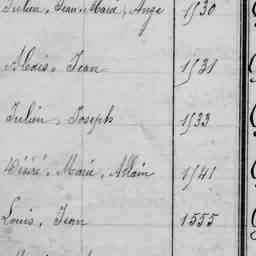 Julien, Jean, Marie, Ange 1530
Alexis, Jean 1531
Julien, Joseph 1533
Désiré, Marie, Allain 1541
Louis, Jean 1555